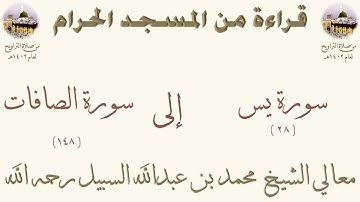 قراءة من المسجد الحرام
من صلاة التراويح
لعام ١٤٠٢هـ
من صلاة التراويح
لعام ١٤٠٢هـ
سورة يس إلى سورة الصافات
(٢٨) (١٤٨)
معالي الشيخ محمد بن عبدالله السبيل رحمه الله